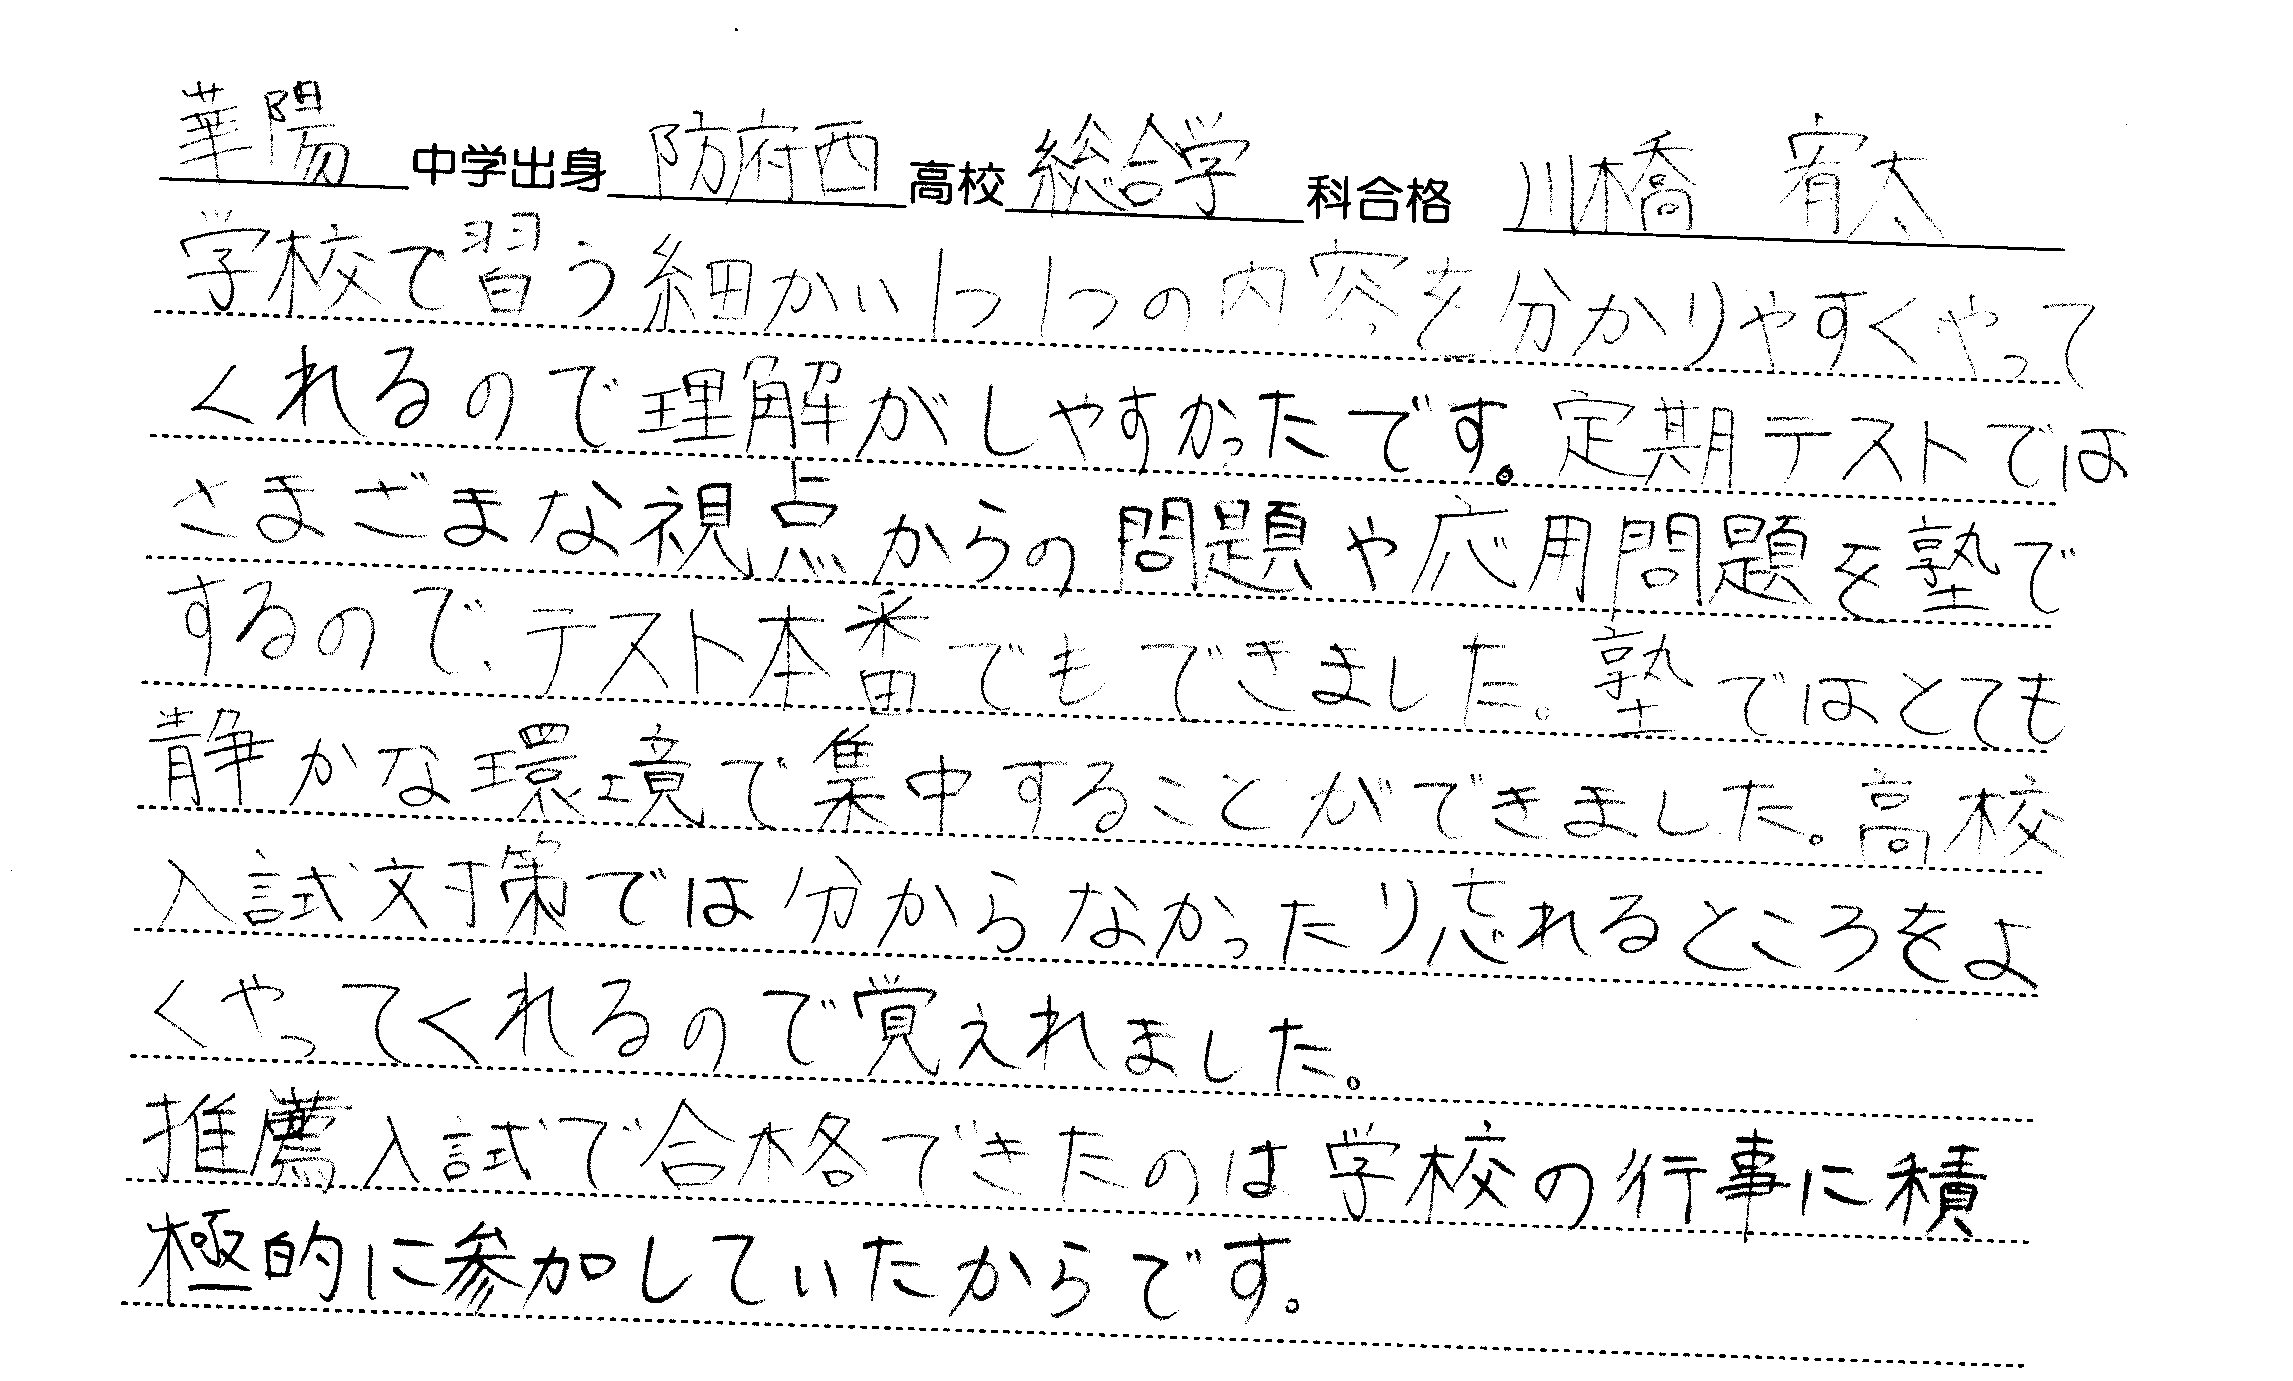 華陽中学出身 防府西高校 総合学科合格 川橋 宥太
学校で習う細かい1つ1つの内容を分かりやすくやって
くれるので理解がしやすかったです。定期テストでは
さまざまな視点からの問題や応用問題を塾で
するので、テスト本番でもできました。塾ではとても
静かな環境で集中することができました。高校
入試対策では分からなかったり忘れるところをよ
くやってくれるので覚えれました。
推薦入試で合格できたのは学校の行事に積
極的に参加していたからです。